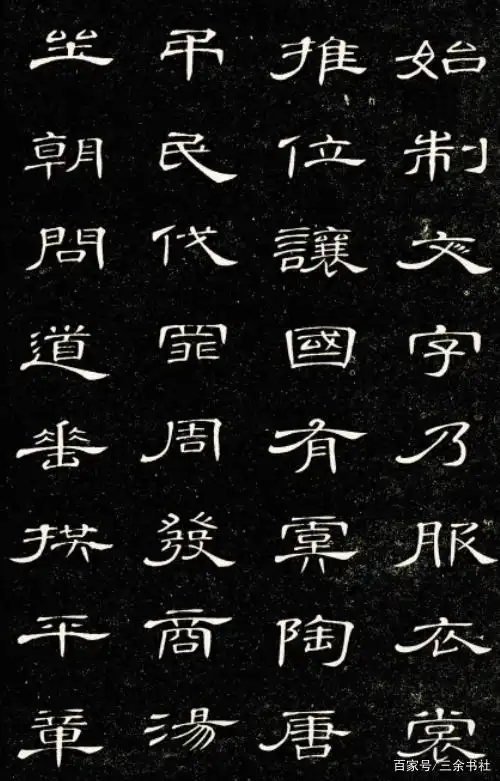 始制文字乃服衣裳
推位讓國有虞陶唐
弔民伐罪周發商湯
坐朝問道垂拱平章
百家号/三余书社